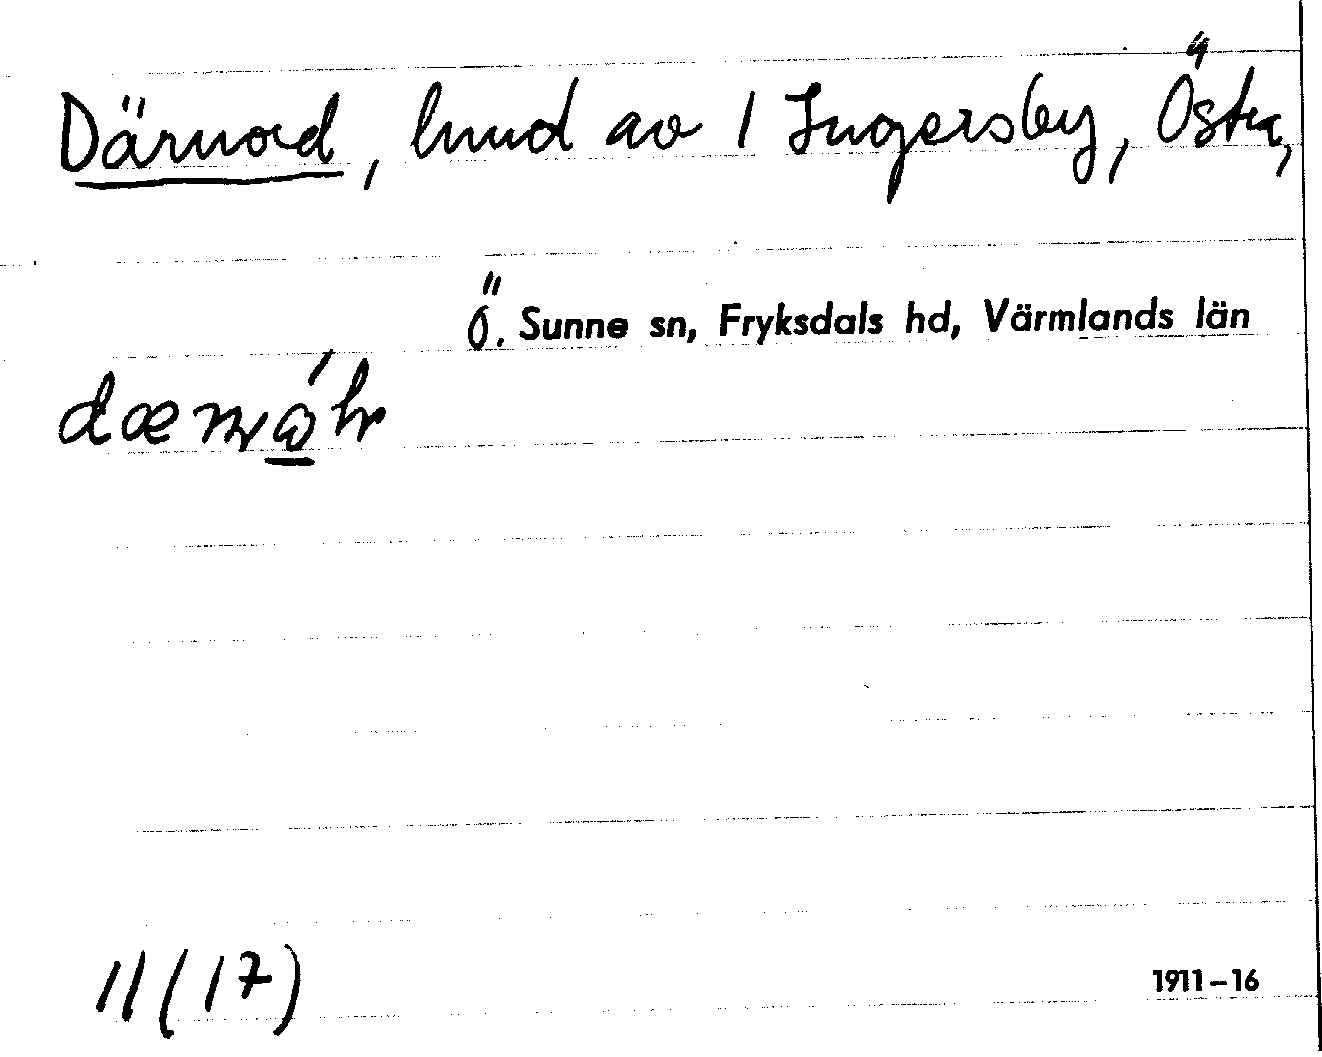 Därnord, hmd av 1 Ingersby, Östra,
Ö. Sunne sn, Fryksdals hd, Värmlands län
11 (17)
1911–16